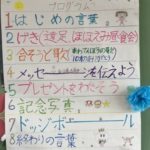 プログラム
1はじめの言葉
2げき(遠足、ほほえみ昼食会)
3合そうと歌
4メッセージを伝えよう
5プレゼントをわたそう
6記念写真
7ドッジボール
8終わりの言葉